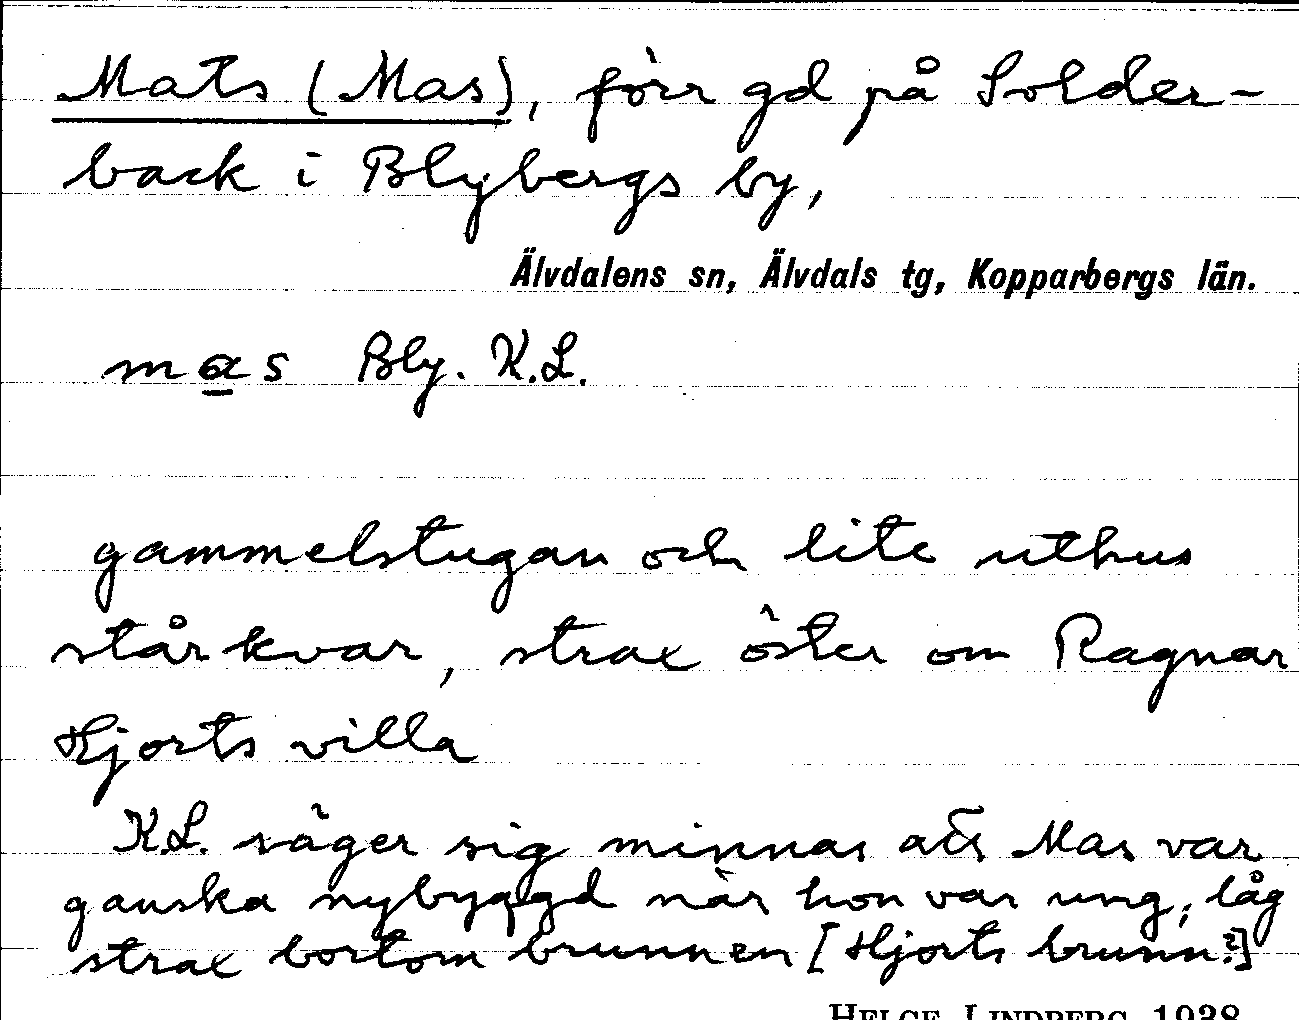 Mats (Mas), förr gd på Solder-
back i Blybergs by,
Älvdalens sn, Älvdals tg, Kopparbergs län.
mas Bly. K.L.
gammelstugan och lite uthus
står kvar, strax öster om Ragnar
Hjorts villa
K.L. säger sig minnas att Mas var
ganska nybyggd när hon var ung, låg
strax bortom brunnen [Hjorts brunn?]
HELGE LINDBERG 1938